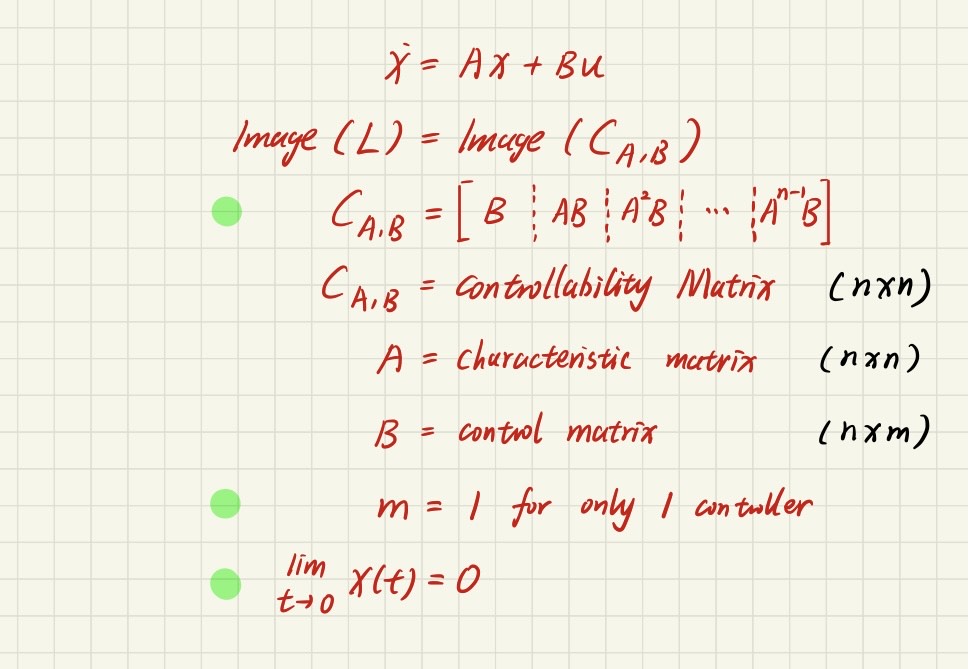 ẋ = Ax + Bu
Image (L) = Image (C_{A,B})
C_{A,B} = [ B ¦ AB ¦ A²B ¦ ⋯ ¦ Aⁿ⁻¹B ]
C_{A,B} = Controllability Matrix (n×n)
A = characteristic matrix (n×n)
B = control matrix (n×m)
m = 1 for only 1 controller
lim_{t→0} x(t) = 0